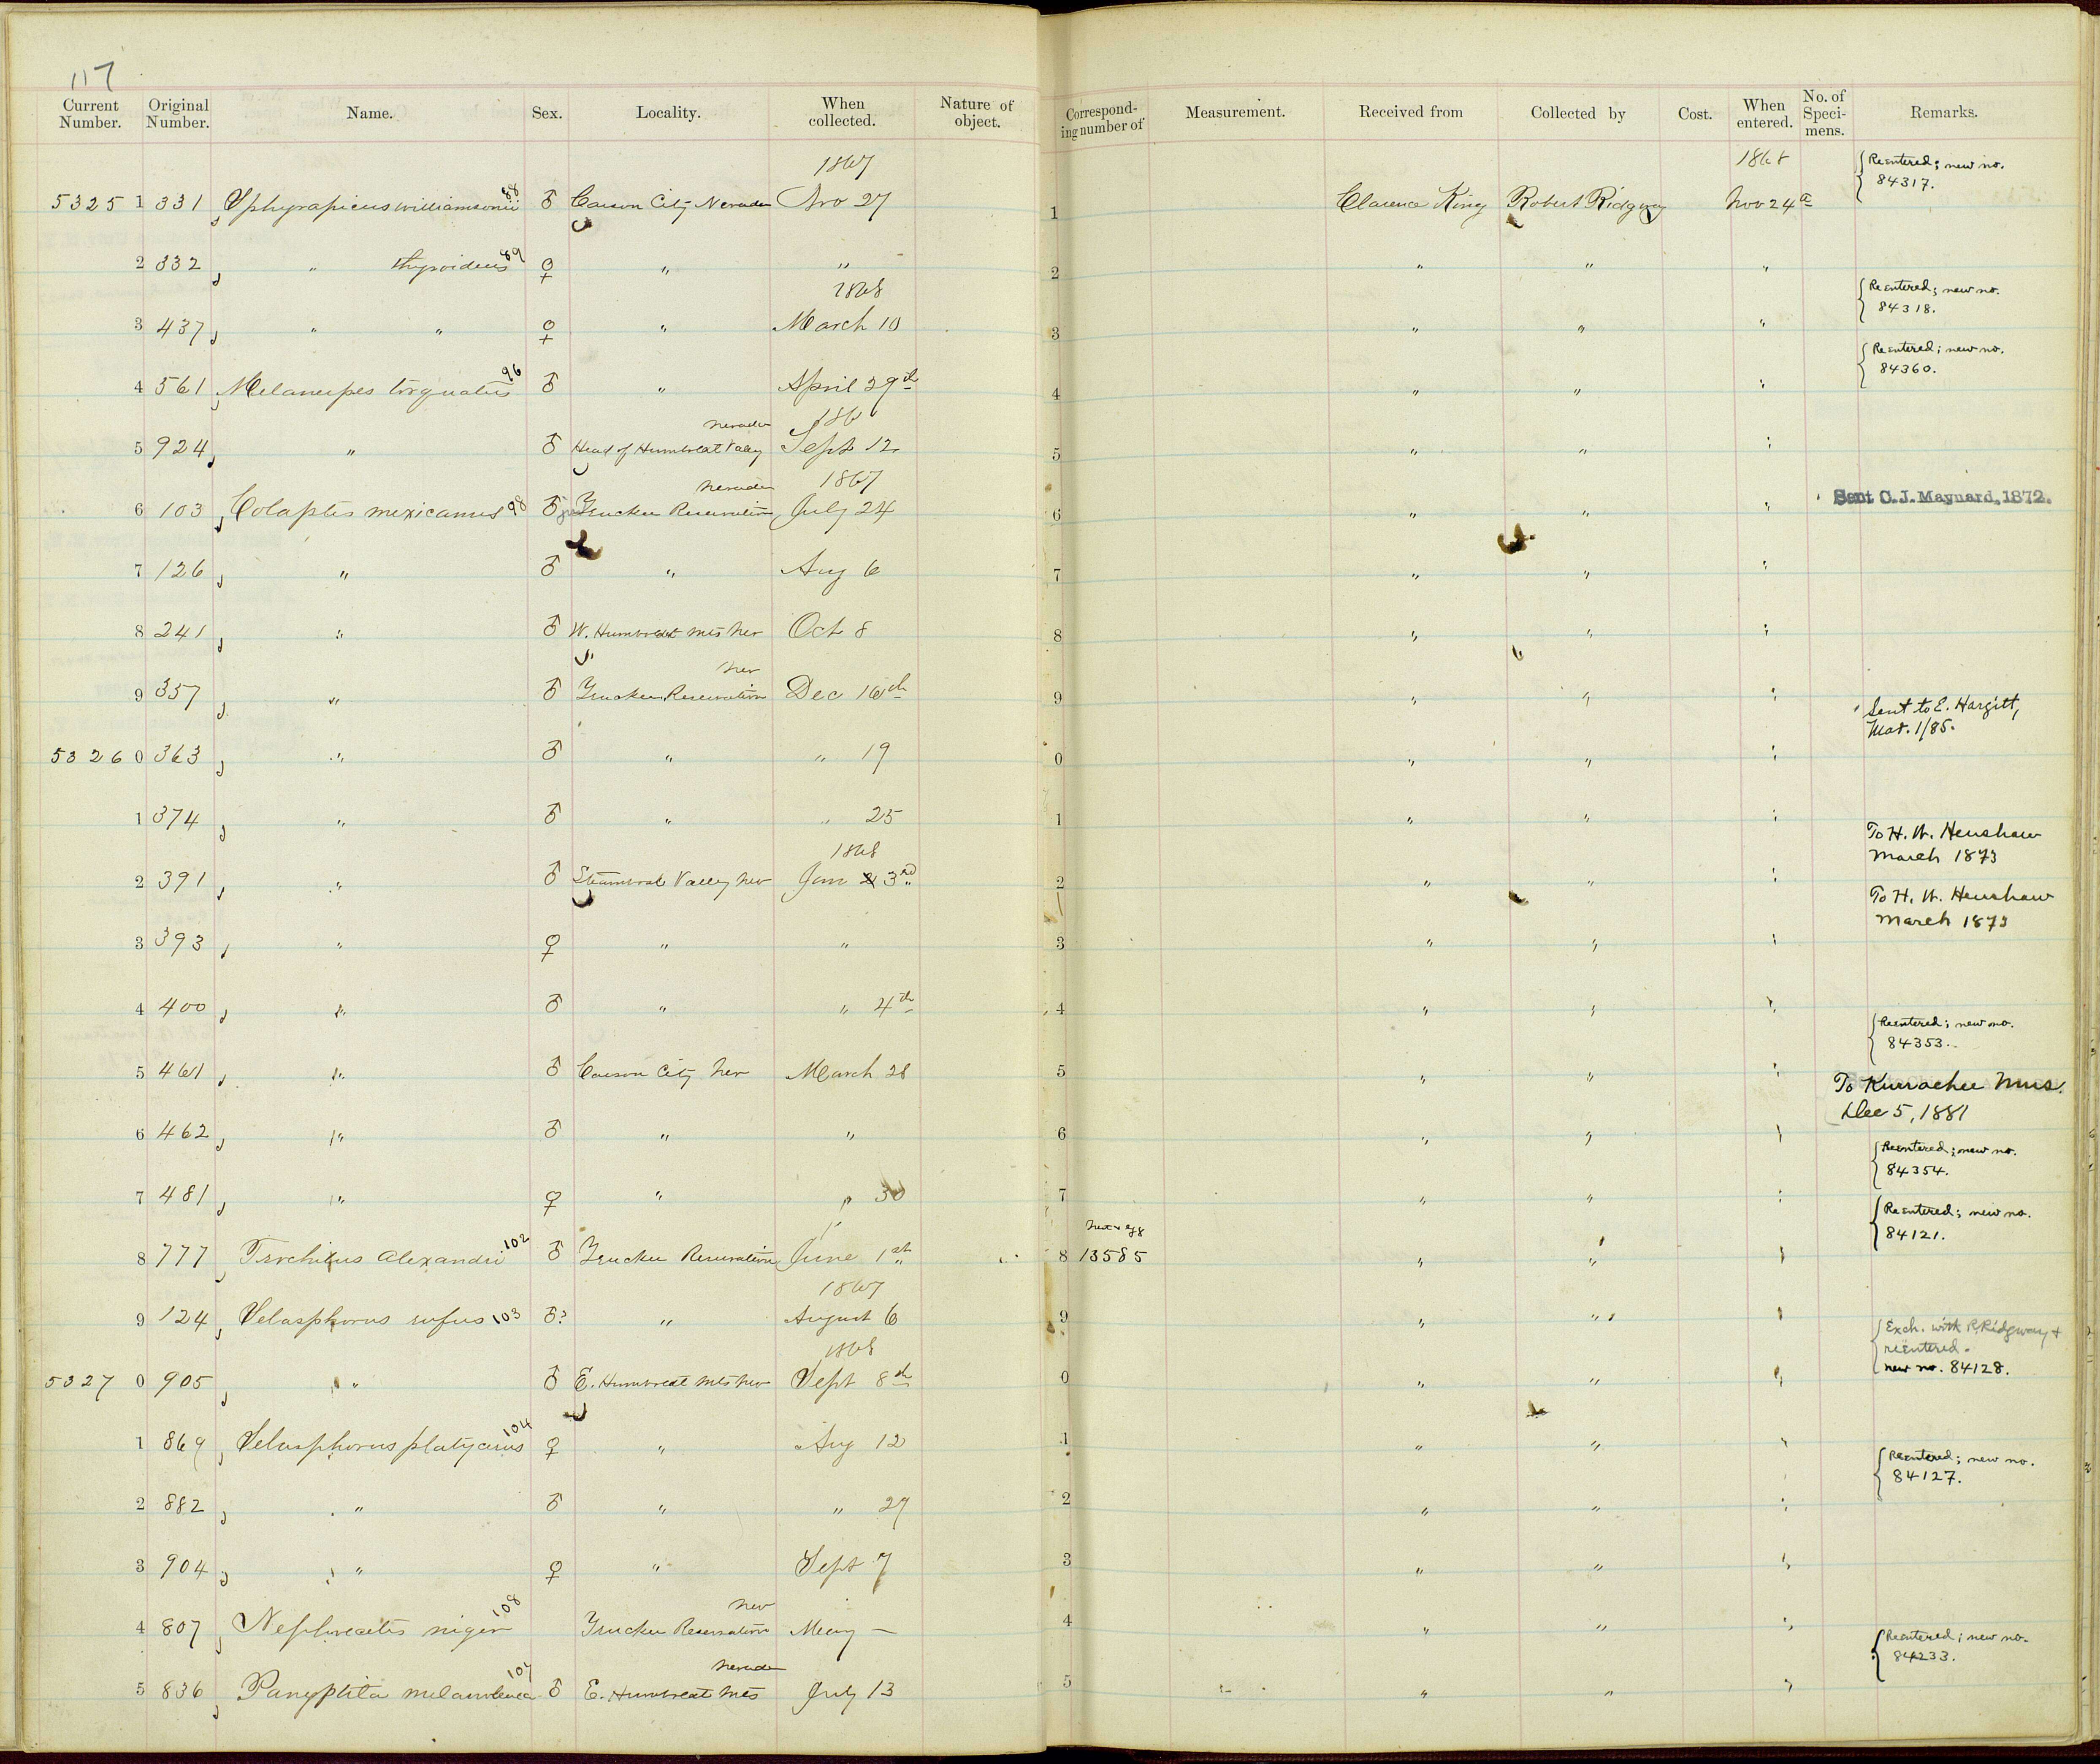 117
Current Number. Original Number. Name. Sex. Locality. When collected. Nature of object. Corresponding number of Measurement. Received from Collected by Cost. When entered. No. of Specimens. Remarks.
1867 1868 {Reentered; new no. 84317.
5325 1 331 Sphyrapicus williamsonii 88 ♂ Carson City Nevada Nov 27 1 Clarence King Robert Ridgway Nov 24
2 332 " thyroideus 89 ♀ " " 2 " " "
1868 {Reentered; new no. 84318.
3 437 " " ♀ " March 10 3 " " "
{Reentered; new no. 84360.
4 561 Melanerpes torquatus 96 ♂ " April 29th 4 " " "
Nevada 186
5 924 " ♂ Head of Humboldt Valley Sept 12 5 " " "
Nevada 1867
6 103 Colaptes mexicanus 98 ♂ Truckee Reservation July 24 6 " " " Sent C. J. Maynard, 1872.
7 126 " ♂ " Aug 6 7 " " "
8 241 " ♂ W. Humboldt Mts Nev Oct 8 8 " " "
Nev
9 357 " ♂ Truckee Reservation Dec 16th 9 " " "
Sent to E. Hargitt, Mar. 1/85.
5326 0 363 " ♂ " " 19 0 " " "
1 374 " ♂ " " 25 1 " " "
1868 To H. W. Henshaw March 1873
2 391 " ♂ Steamboat Valley Nev Jan 3rd 2 " " "
To H. W. Henshaw March 1873
3 393 " ♀ " " 3 " " "
4 400 " ♂ " " 4th 4 " " "
{Reentered; new no. 84353.
5 461 " ♂ Carson City Nev March 28 5 " " "
To Kurrachee Mus. Dec 5, 1881
6 462 " ♂ " " 6 " " "
{Reentered; new no. 84354.
7 481 " ♀ " " 30 7 " " "
Nest & egg {Reentered; new no. 84121.
8 777 Trochilus Alexandri 102 ♂ Truckee Reservation June 1st 8 13585 " " "
1867
9 124 Selasphorus rufus 103 ♂? " August 6 9 " " "
1868 {Exch. with R. Ridgway & reentered. new no. 84128.
5327 0 905 " ♂ E. Humboldt Mts Nev Sept 8th 0 " " "
1 869 Selasphorus platycercus 104 ♀ " Aug 12 1 " " "
{Reentered; new no. 84127.
2 882 " ♂ " " 27 2 " " "
3 904 " ♀ " Sept 7 3 " " "
Nev
4 807 Nephocaetes niger 108 Truckee Reservation May — 4 " " "
Nevada {Reentered; new no. 84233.
5 836 Panyptila melanoleuca 107 ♂ E. Humboldt Mts July 13 5 " " "